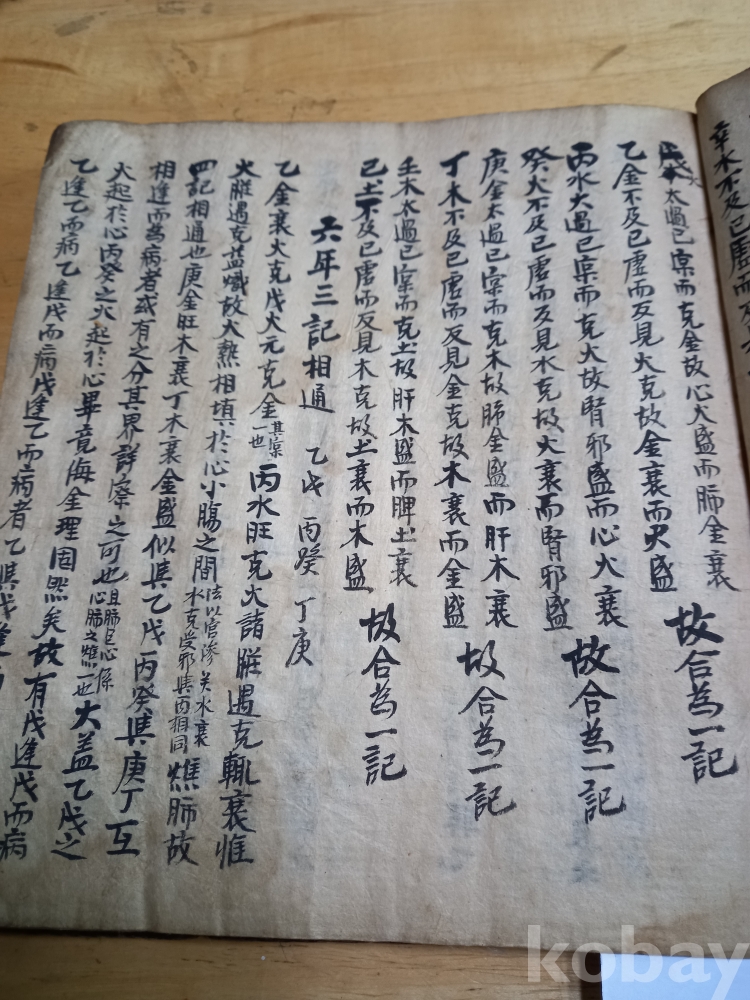 辛水不及已虛而反
太過已窠而克金故心火盛而肺金衰
乙金不及已虛而反見火克故金衰而火盛 故合為一記
丙水太過已窠而克火故腎邪盛而心火衰
癸火不及已虛而反見水克故火衰而腎邪盛 故合為一記
庚金太過已窠而克木故肺金盛而肝木衰
丁木不及已虛而反見金克故木衰而金盛 故合為一記
壬木太過已窠而克土故肝木盛而脾土衰
己土不及已虛而反見木克故土衰而木盛 故合為一記
六年三記相通 乙戊 丙癸 丁庚
乙金衰火克戊火元克金其窠一也丙水旺克火諸脏遇克輒衰惟
火脏遇克益熾故大熱相填於心小腸之間法以官滲关水衰水克受邪其丙相同燋肺故
四記相通也庚金旺木衰丁木衰金盛似其乙戊丙癸其庚丁互
相逢而為病者或有之分其界詳察之可也且肺巨心系心肺之燋一也大盖乙戊之
火起於心丙癸之火起於心畢竟侮金理固然矣故有戊逢戊而病
乙逢乙而病乙逢戊而病戊逢乙而病者乙其戊逢